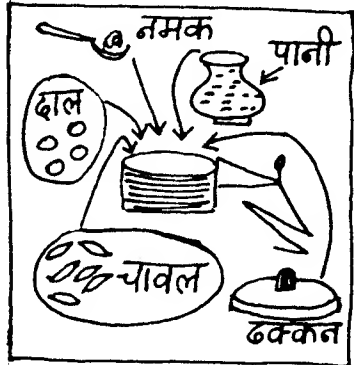 नमक
पानी
दाल
चावल
ढक्कन